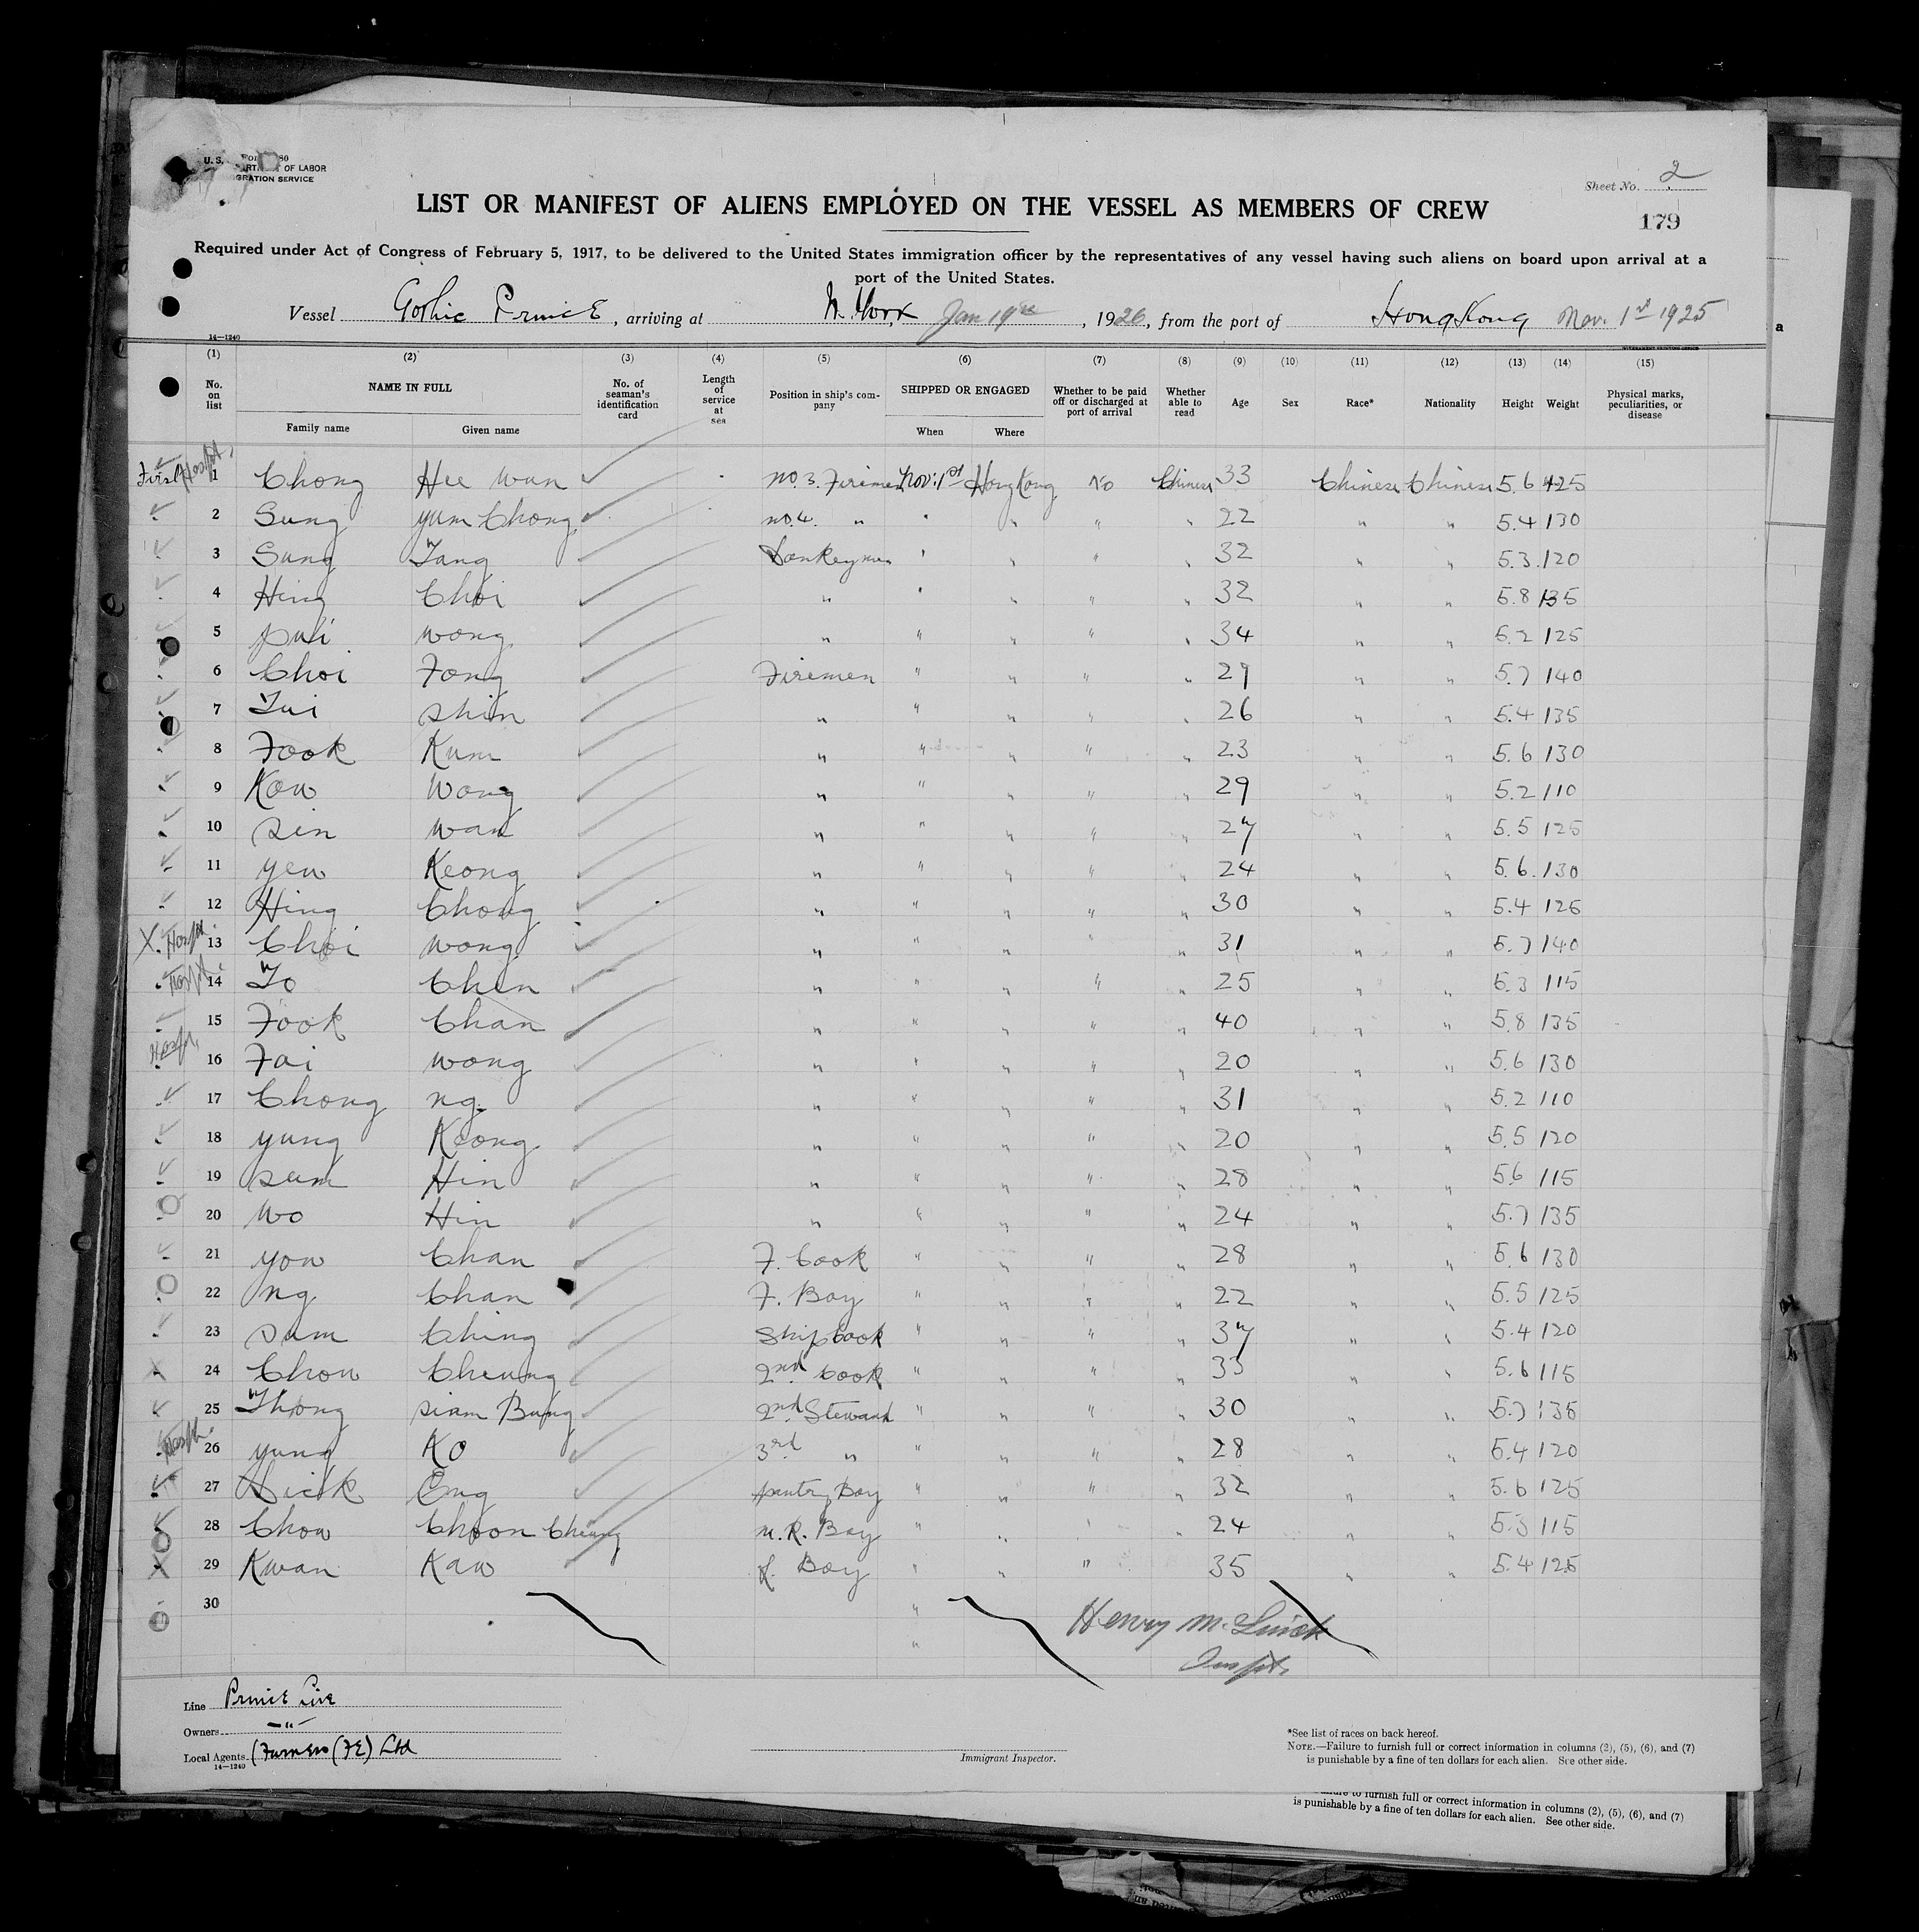 U. S.
OF LABOR
GRATION SERVICE
Sheet No. 2
179
LIST OR MANIFEST OF ALIENS EMPLOYED ON THE VESSEL AS MEMBERS OF CREW
Required under Act of Congress of February 5, 1917, to be delivered to the United States immigration officer by the representatives of any vessel having such aliens on board upon arrival at a
port of the United States.
Vessel Gothic Prince, arriving at N. York Jan 19th, 1926, from the port of Hong Kong Nov. 1st 1925
14—1240
(1) (2) (3) (4) (5) (6) (7) (8) (9) (10) (11) (12) (13) (14) (15)
No. on list NAME IN FULL Family name Given name No. of seaman's identification card Length of service at sea Position in ship's company SHIPPED OR ENGAGED When Where Whether to be paid off or discharged at port of arrival Whether able to read Age Sex Race* Nationality Height Weight Physical marks, peculiarities, or disease
First Hospt. 1 Chong Hee Wun No. 3. Firemen Nov: 1st Hong Kong No Chinese 33 Chinese Chinese 5.6 125
2 Sung yum Chong no. 4. " " " " 22 " " 5.4 130
3 Sung Tang Donkeyman " " " " 32 " " 5.3. 120
4 Hing Choi " " " " " 32 " " 5.8 135
5 pui wong " " " " " 34 " " 5.2 125
6 Choi Fong Firemen " " " " 29 " " 5.7 140
7 Tui Shin " " " " " 26 " " 5.4 135
8 Fook Kum " " " " " 23 " " 5.6 130
9 Kow Wong " " " " " 29 " " 5.2 110
10 Sin wan " " " " " 27 " " 5.5 125
11 yew Keong " " " " " 24 " " 5.6. 130
12 Hing Chong " " " " " 30 " " 5.4 125
X. Hospt. 13 Choi wong " " " " " 31 " " 5.7 140
Hospt. 14 To Chen " " " " " 25 " " 5.3 115
15 Fook Chan " " " " " 40 " " 5.8 135
Hospt. 16 Fai wong " " " " " 20 " " 5.6 130
17 Chong ng. " " " " " 31 " " 5.2 110
18 yung Keong " " " " " 20 " " 5.5 120
19 sum Hin " " " " " 28 " " 5.6 115
20 Wo Hin " " " " " 24 " " 5.7 135
21 yow Chan F. Cook " " " " 28 " " 5.6 130
22 ng Chan F. Boy " " " " 22 " " 5.5 125
23 sum Ching Ship Cook " " " " 37 " " 5.4 120
X 24 Chow Cheung 2nd Cook " " " " 33 " " 5.6 115
25 Thong siam Bung 2nd Steward " " " " 30 " " 5.7 135
Hospt. 26 yung Ko 3rd " " " " " 28 " " 5.4 120
27 Dick Eng pantry Boy " " " " 32 " " 5.6 125
28 Chow Choon Cheung M. R. Boy " " " " 24 " " 5.3 115
X 29 Kwan Kaw Boy " " " " 35 " " 5.4 125
30 "
Henry
Inspt.
Line Prince Line
Owners —"—
Local Agents (Furness (FE) Ltd
14—1240
Immigrant Inspector.
*See list of races on back hereof.
NOTE.—Failure to furnish full or correct information in columns (2), (5), (6), and (7)
is punishable by a fine of ten dollars for each alien. See other side.
to furnish full or correct information in columns (2), (5), (6), and (7)
is punishable by a fine of ten dollars for each alien. See other side.